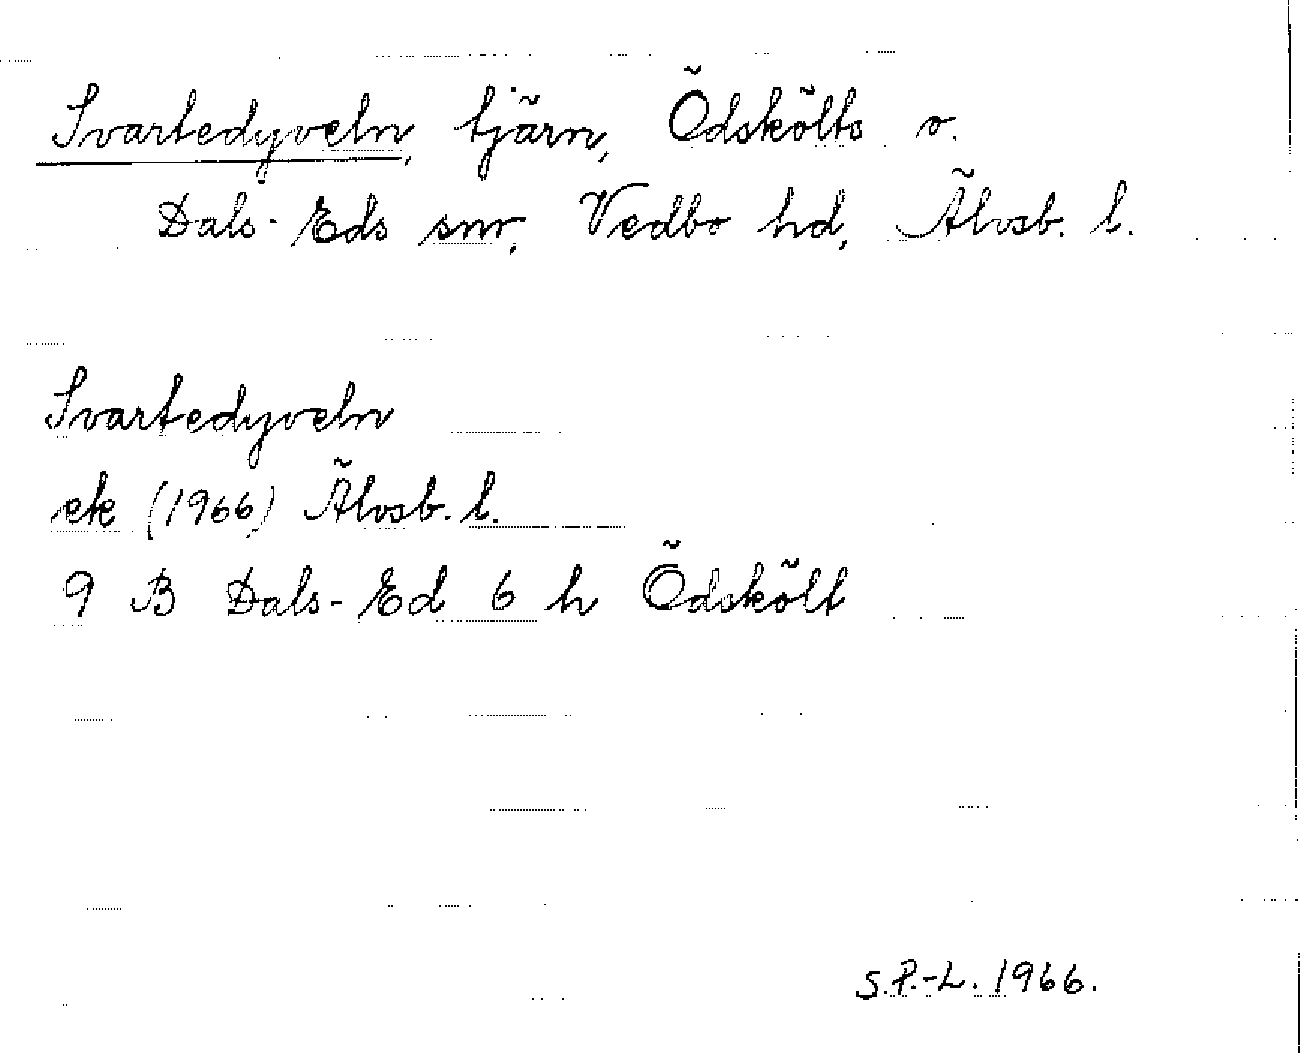 Svartedyveln, tjärn, Ödskölts o.
Dals-Eds snr, Vedbo hd, Älvsb. l.
Svartedyveln
ek (1966) Älvsb. l.
9 B Dals-Ed 6 h Ödskölt
S.P.-L. 1966.